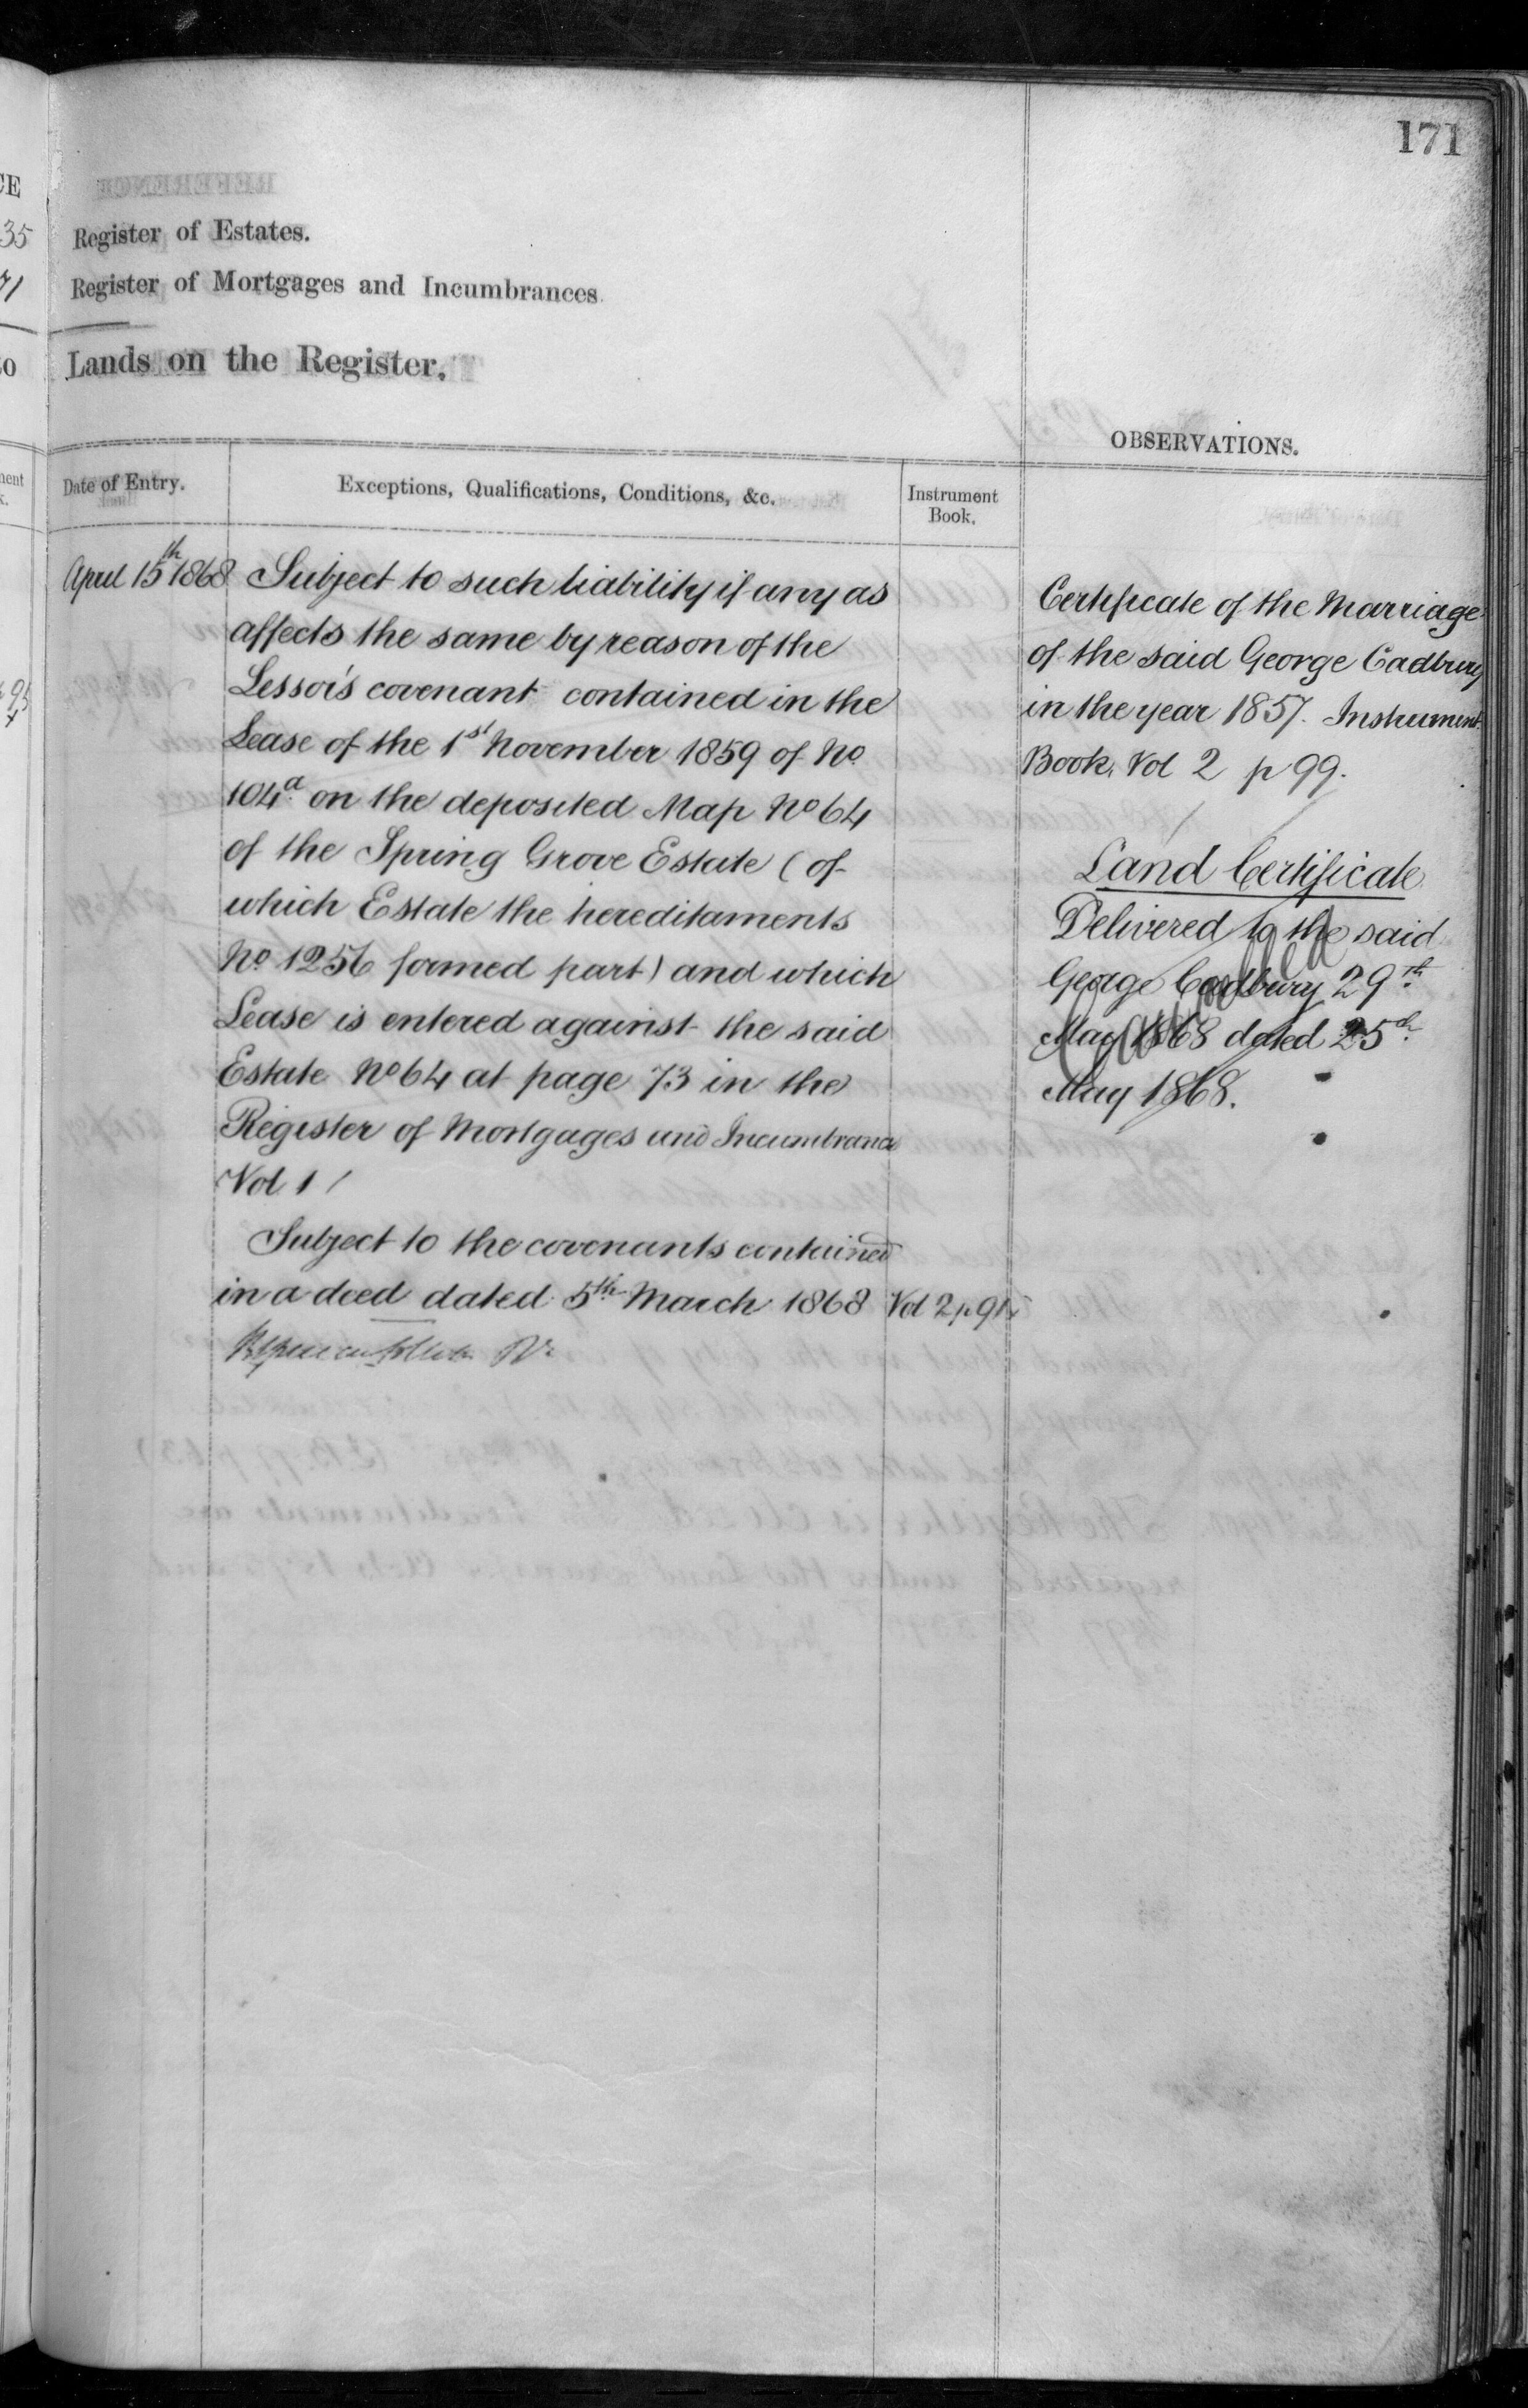 171
Register of Estates.
Register of Mortgages and Incumbrances.
Lands on the Register.
OBSERVATIONS.
Date of Entry.
Exceptions, Qualifications, Conditions, &c.
Instrument
Book.
April 15th 1868
Subject to such liability if any as
affects the same by reason of the
Lessor's covenant contained in the
Lease of the 1st November 1859 of No.
104a on the deposited Map No 64
of the Spring Grove Estate (of
which Estate the hereditaments
No. 1256 formed part) and which
Lease is entered against the said
Estate No 64 at page 73 in the
Register of Mortgages and Incumbrances
Vol 1
Subject to the covenants contained
in a deed dated 5th March 1868
Vol 2 p 91
Certificate of the Marriage
of the said George Cadbury
in the year 1857. Instrument
Book, Vol 2 p 99.
Land Certificate
Delivered to the said
George Cadbury 29th
May 1868 dated 25th
May 1868.
Cancelled